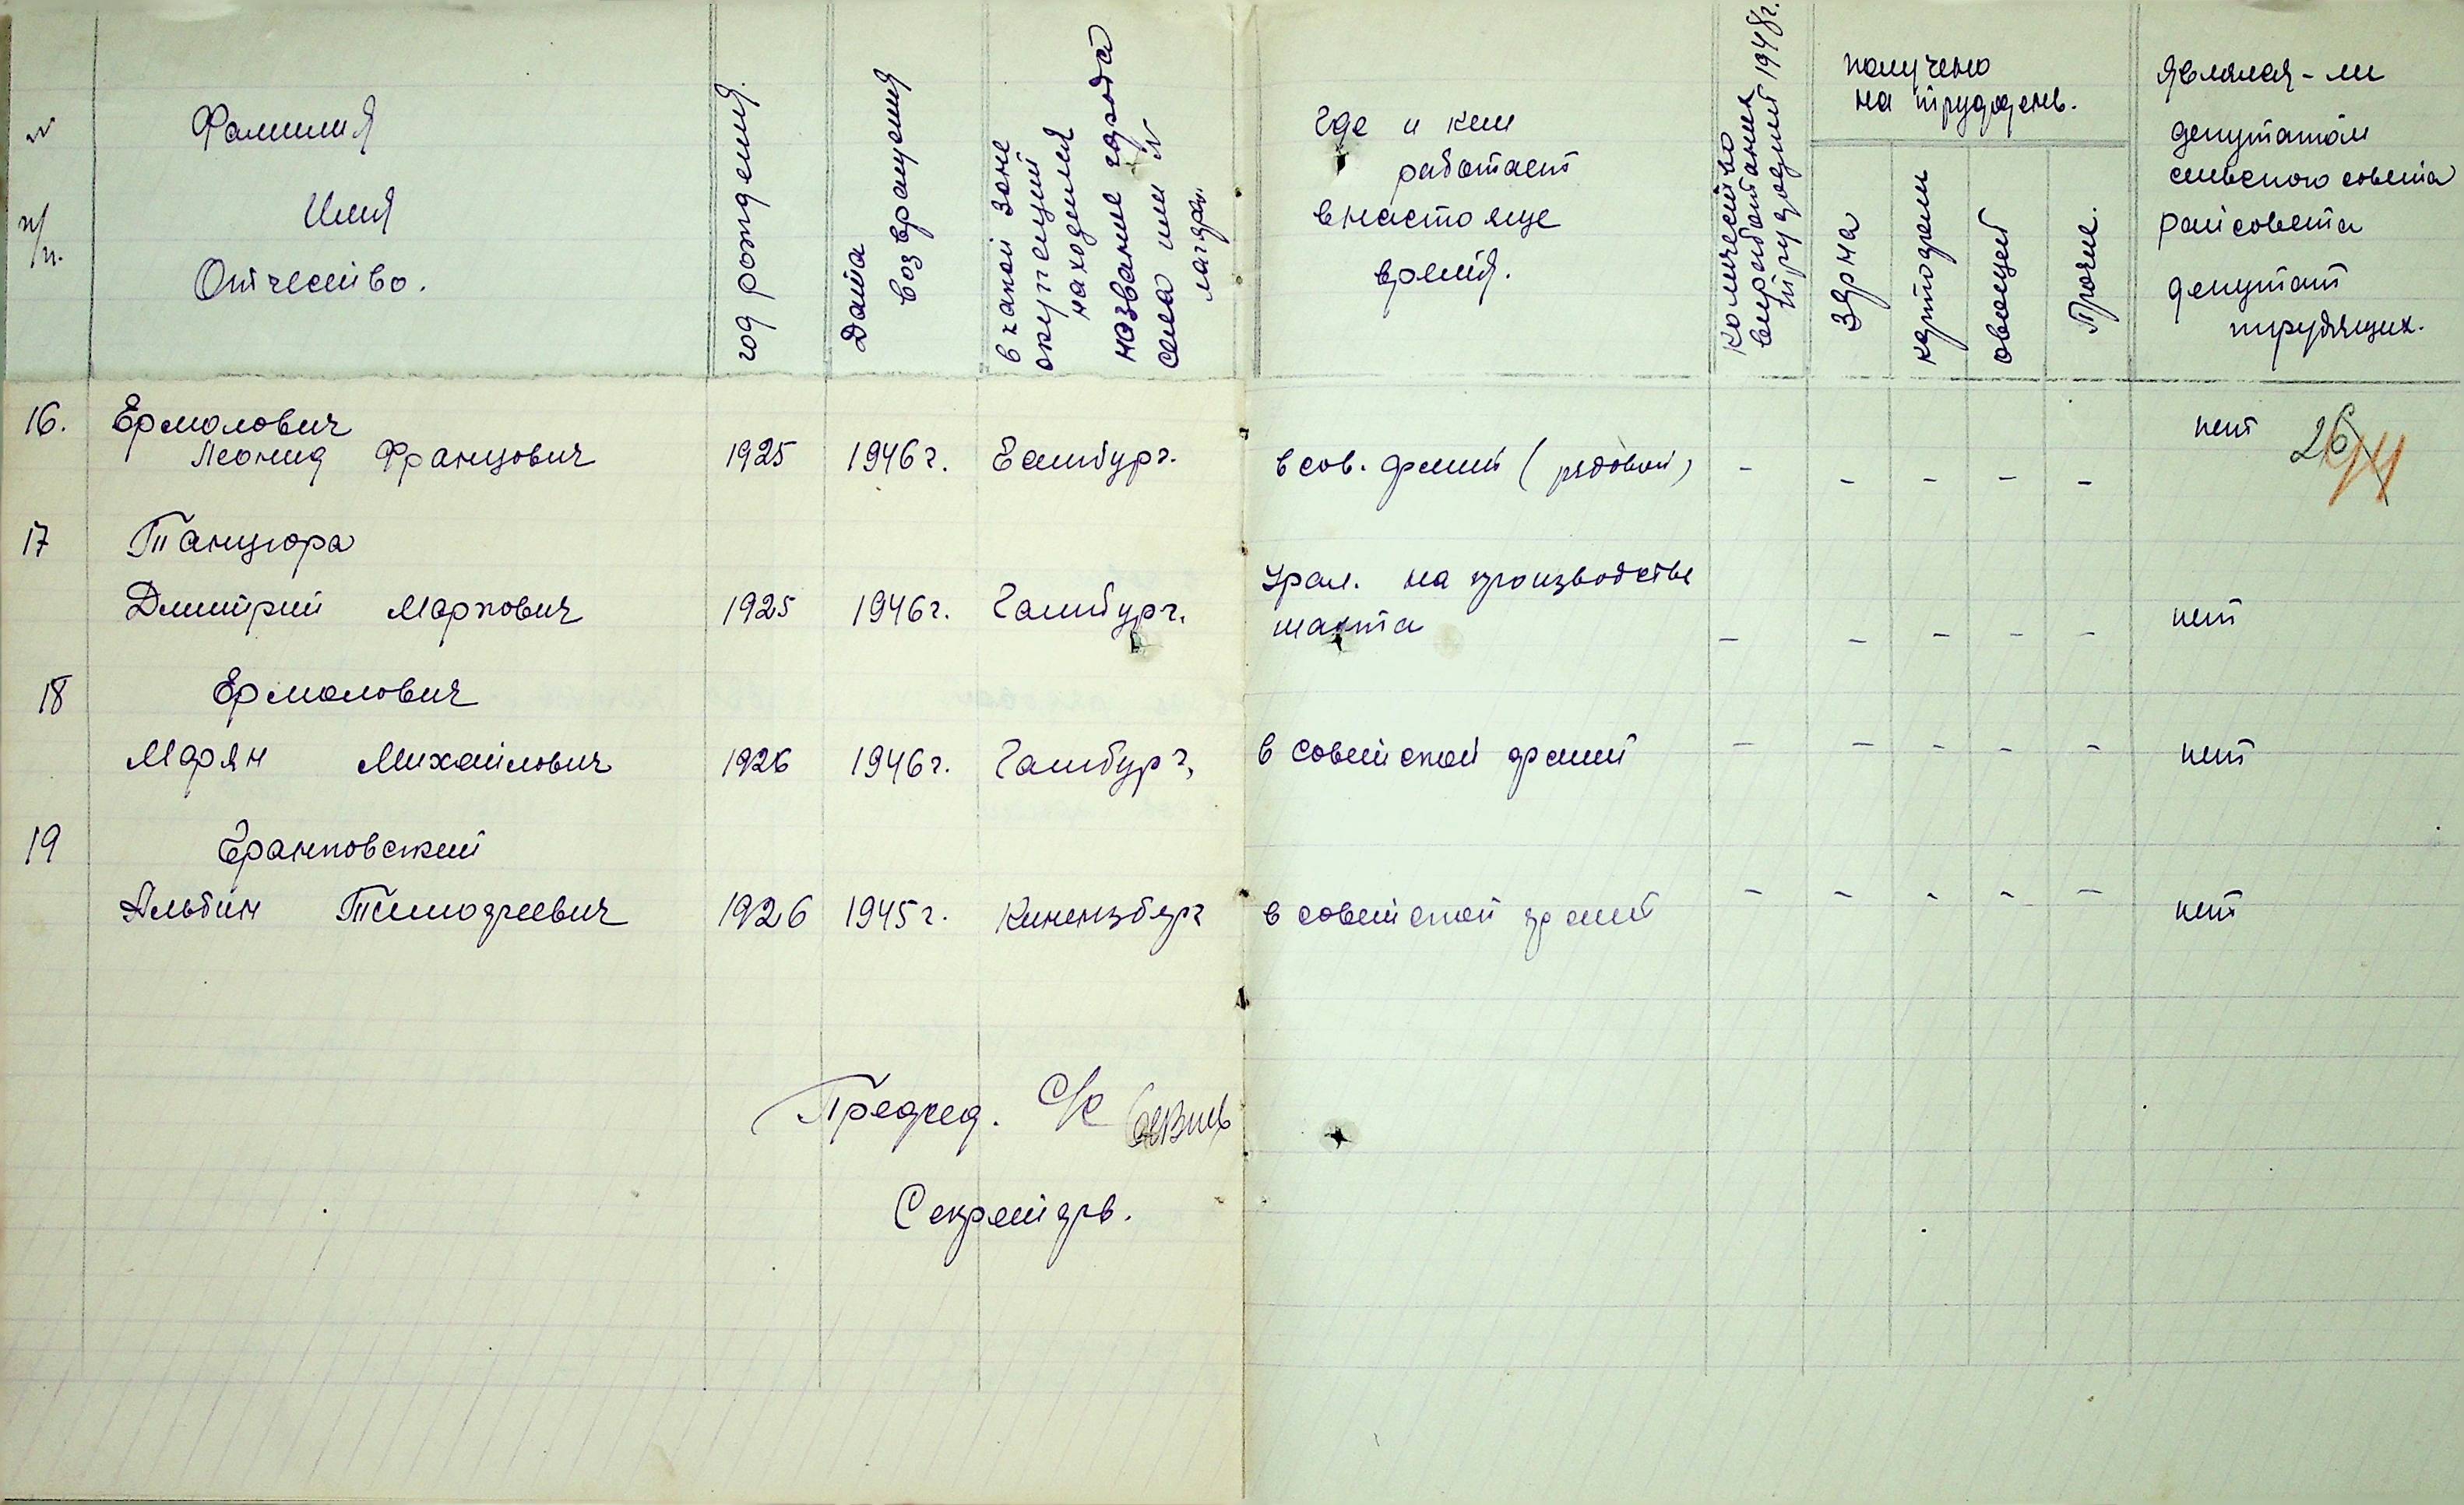 №
п/п.
Фамилия
Имя
Отчество.
год рождения.
Дата
возвращения
в какой зоне
окупаций
находился
название города
села или №
лагеря.
Где и кем
работает
внастояще
время.
Количество
выработаных
трудодней 1948г.
получено
на трудодень.
Зерна
картофеля
овощей
Прочие.
являлся-ли
депутатом
сельского совета
райсовета
депутат
трудящих.
16. Ермолович
Леонид Францович 1925 1946г. Гамбург. в сов. армий (рядовой) - - - - - нет 26
17 Танцюра
Дмитрий Маркович 1925 1946г. Гамбург. Урал. на производстве
шахта - - - - - нет
18 Ермолович
Марян Михайлович 1926 1946г. Гамбург, в советской армий - - - - - нет
19 Франковский
Альбин Тимофеевич 1926 1945г. Кинензберг в советской армий - - - - - нет
Председ. С/С
Секретарь.